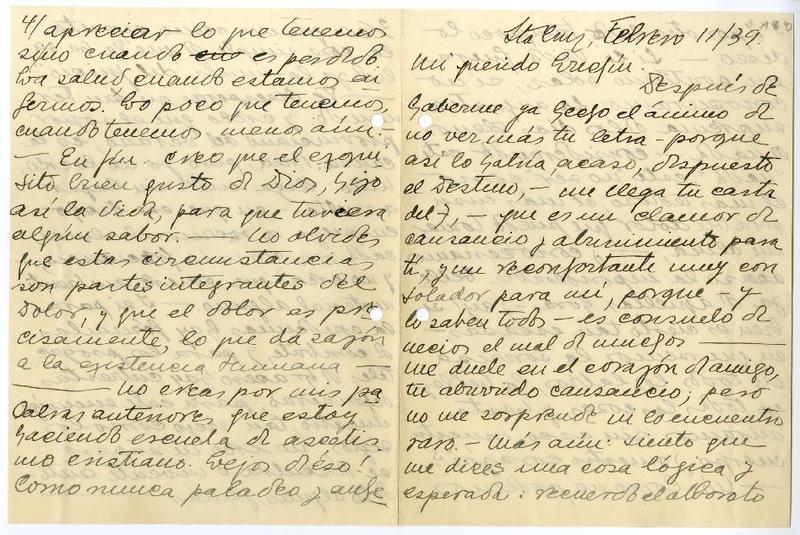 4/ apreciar lo que tenemos
sino cuando es perdido
La salud, cuando estamos en
fermos. Lo poco que tenemos,
cuando tenemos menos aún.-
— En fin. creo que el exqui
sito buen gusto de Dios, hizo
así la vida, para que tuviera
algún sabor. — No olvides
que estas circumstancias
son partes integrantes del
Dolor, y que el dolor es pre
cisamente, lo que dá sazón
a la existencia humana —
— No creas por mis pa
labras anteriores que estoy
haciendo escuela de ascetis
mo cristiano. Lejos de éso!
Como nunca paladeo y
Febrero 11/39.
Mi querido
Después de
haberme ya hecho el ánimo de
no ver más tu letra - porque
así lo había, acaso, dispuesto
el Destino, - me llega tu carta
del 7, - que es un clamor de
cansancio y aburrimiento para
ti, y un reconfortante muy con
solador para mí, porque - y
lo saben todos - es consuelo de
necios el mal de muchos —
me duele en el corazón, amigo,
tu aburrido cansancio; pero
no me sorprende ni lo encuentro
raro. - Más aún: siento que
me dices una cosa lógica y
esperada: recuerdo el alboroto